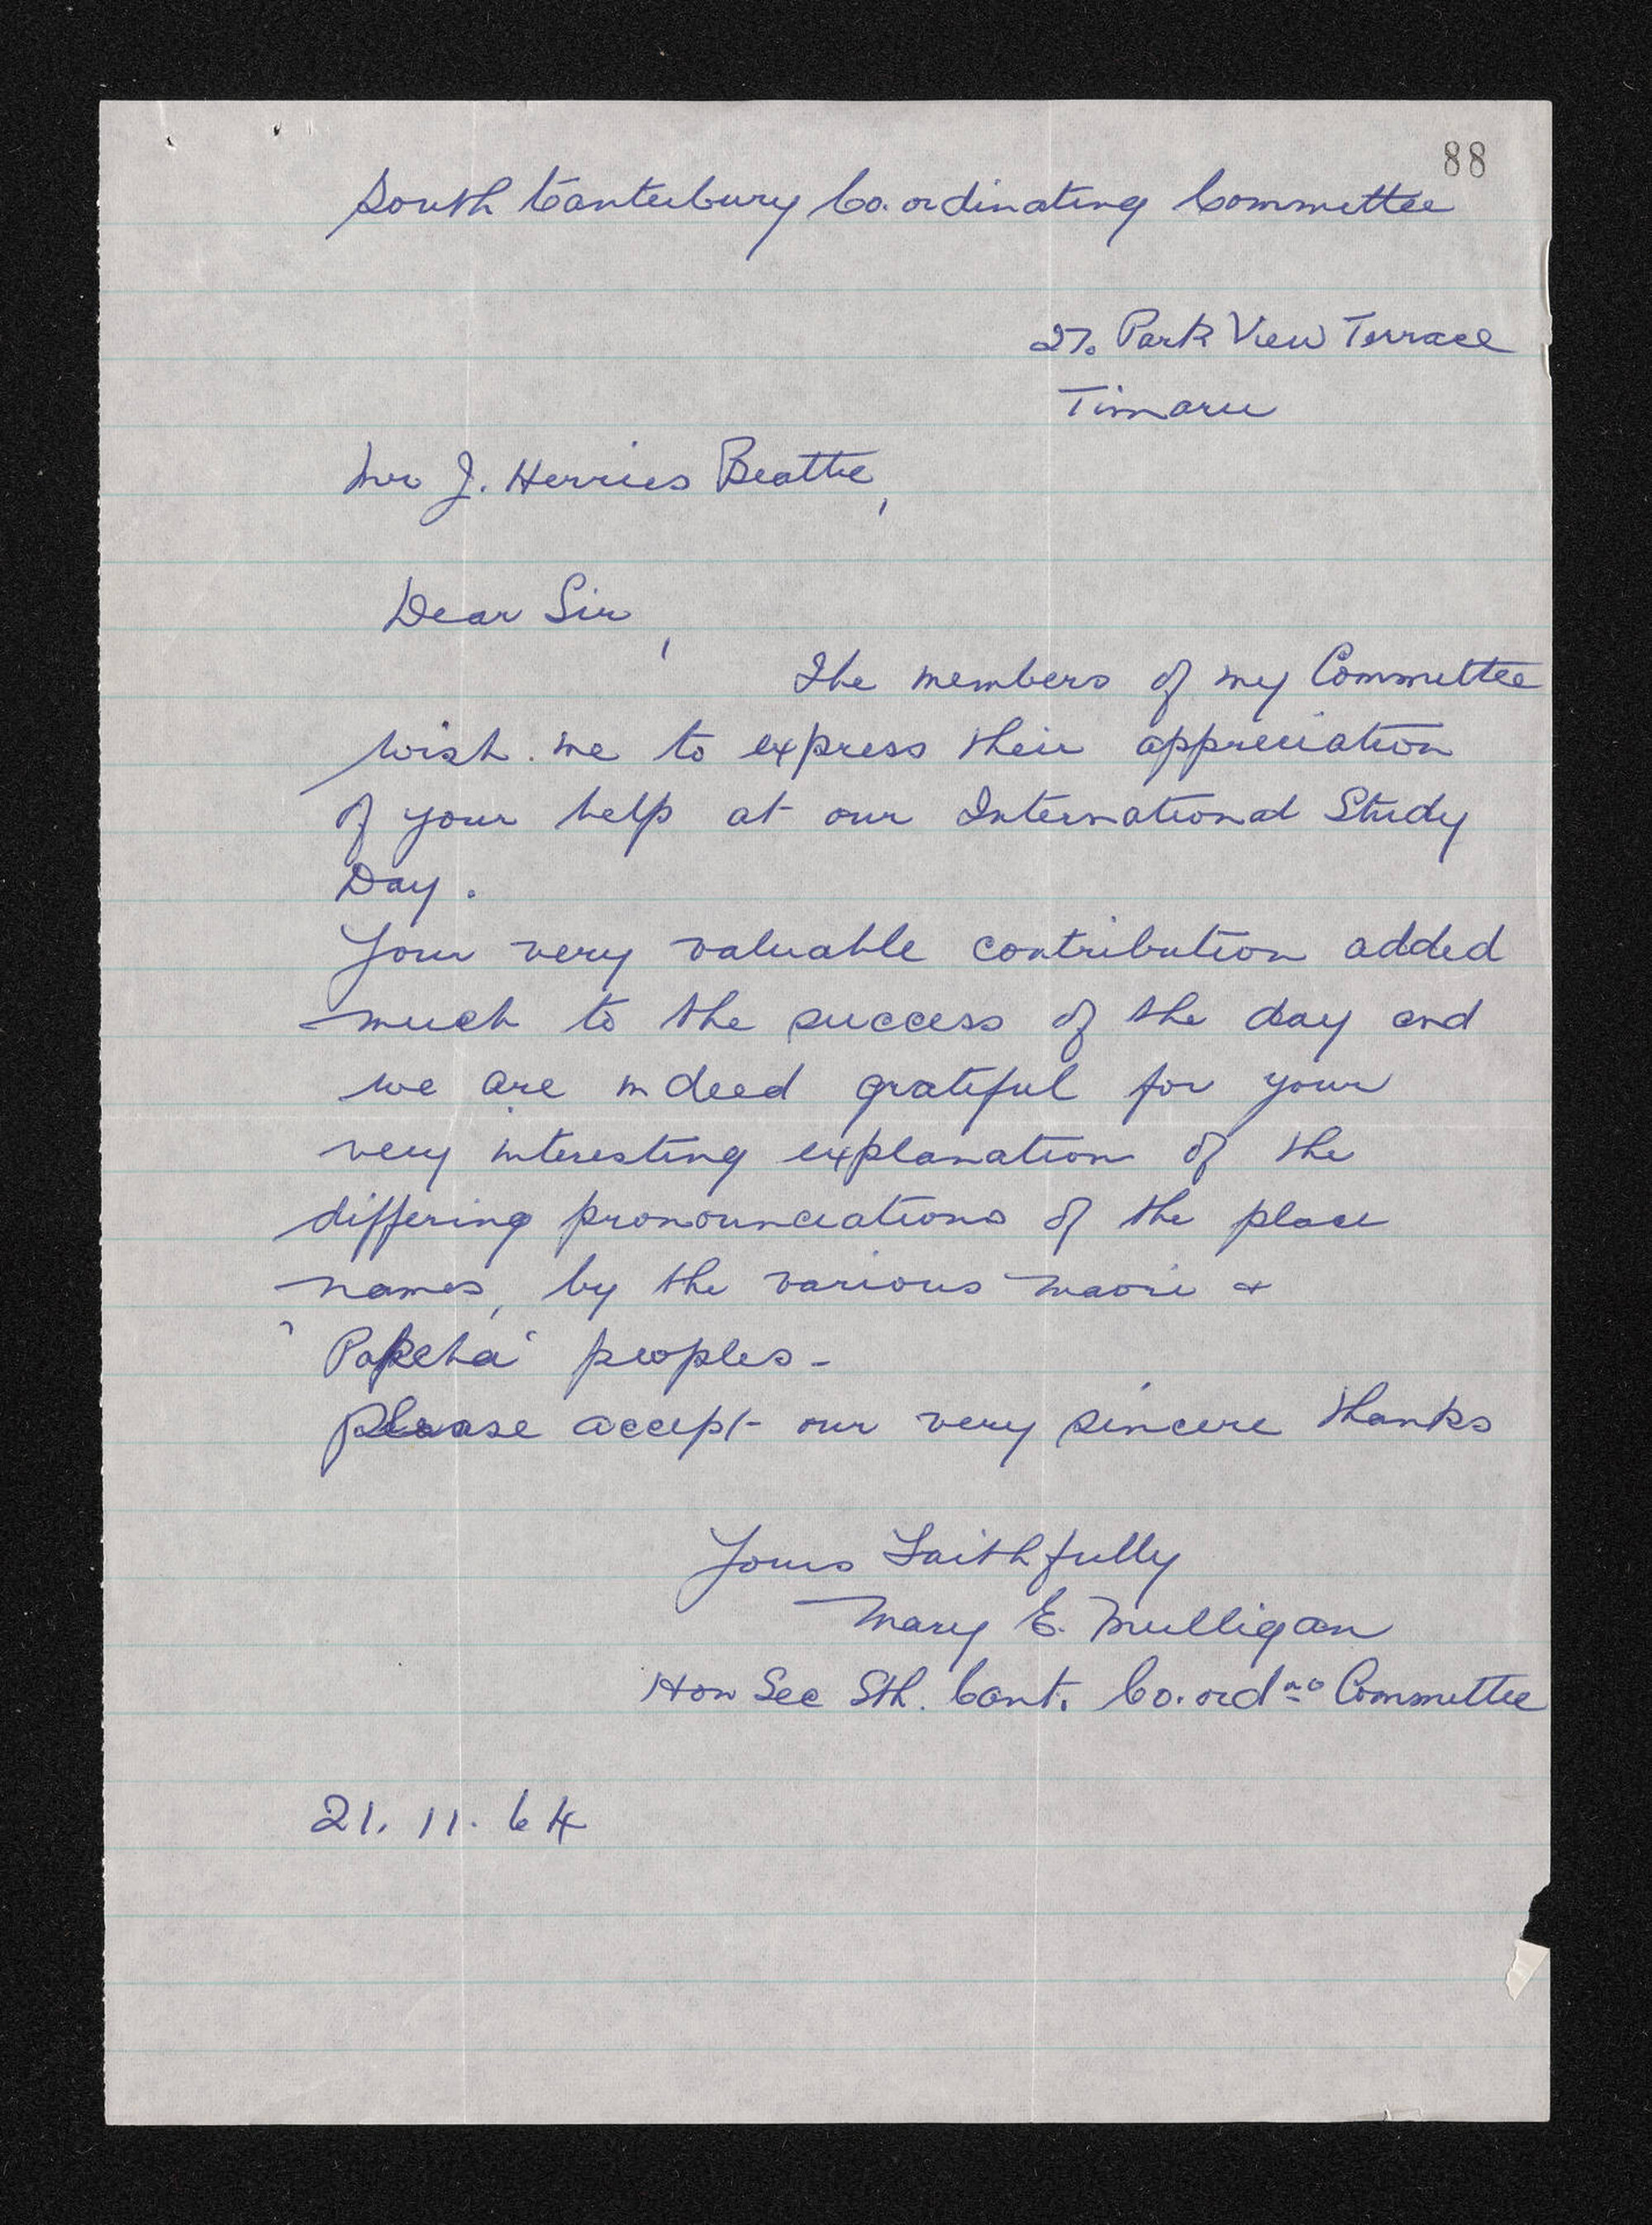 88
South Canterbury Co.ordinating Committee
27. Park View Terrace
Timaru
Mr J. Herries Beattie,
Dear Sir,
The members of my Committee
wish me to express their appreciation
of your help at our International Study
Day.
Your very valuable contribution added
much to the success of the day and
we are indeed grateful for your
very interesting explanation of the
differing pronounciations of the place
names, by the various Maori &
'Pakeha' peoples -
Please accept our very sincere thanks
Yours Faithfully
Mary E. Mulligan
Hon Sec Sth. Cant. Co.ord Committee
21. 11. 64